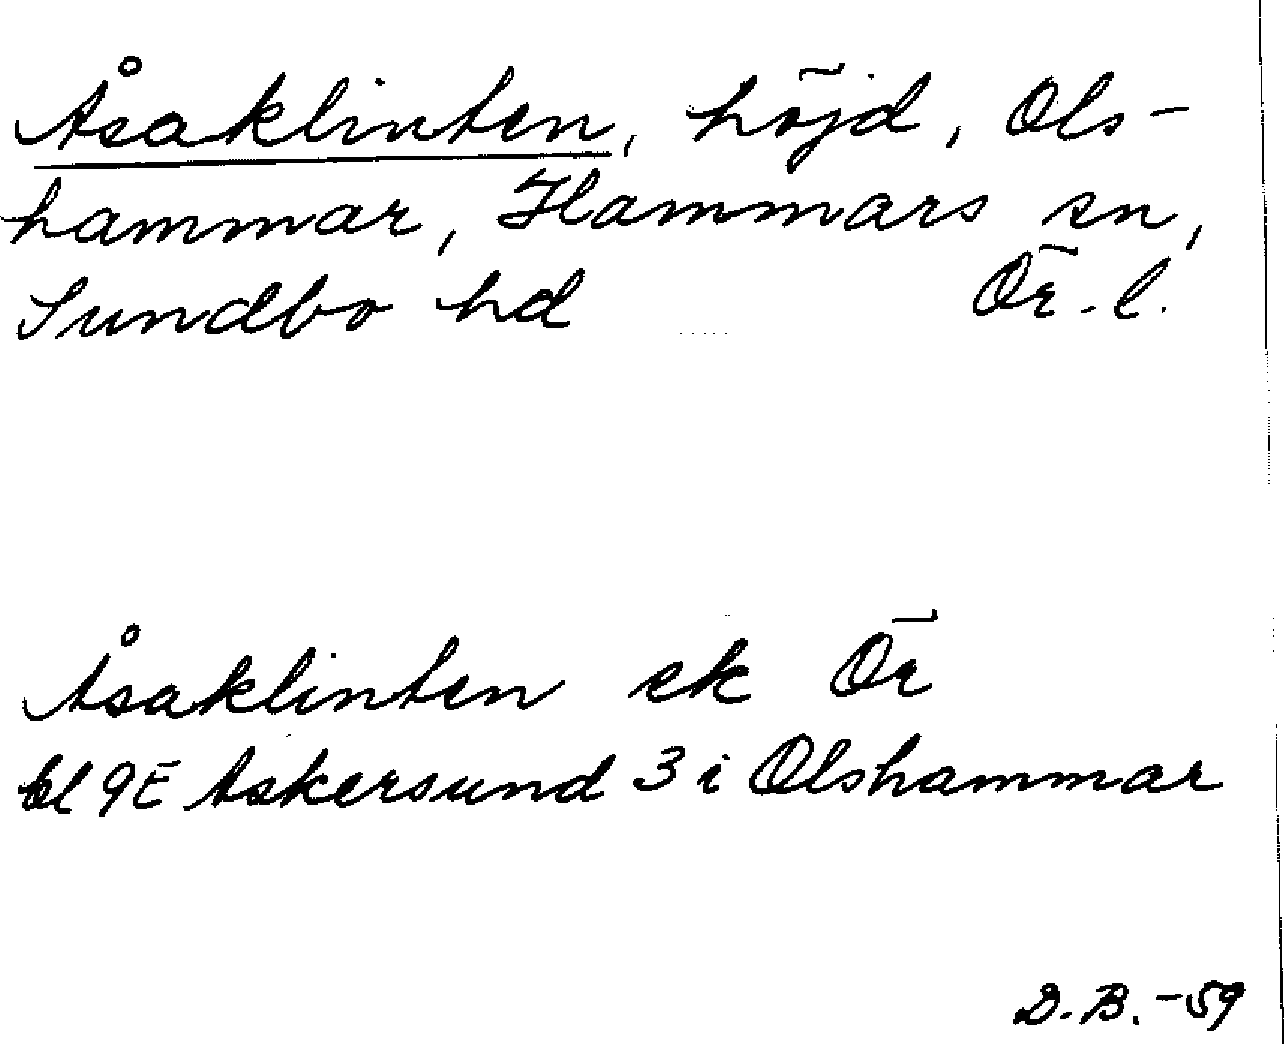 Åsaklinten, höjd, Ols-
hammar, Hammars sn,
Sundbo hd Ör. l.
Åsaklinten ek Ör
bl 9E Askersund 3 i Olshammar
D.B. -59